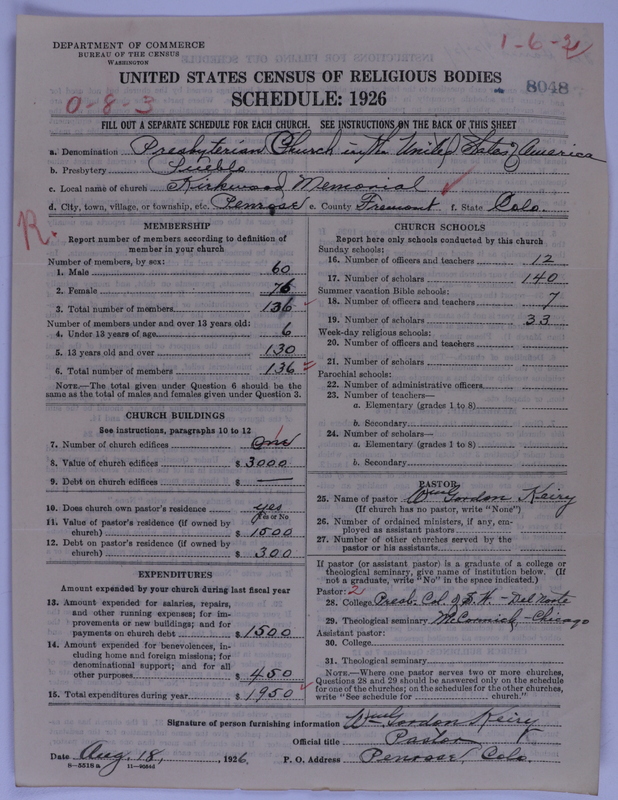 DEPARTMENT OF COMMERCE
BUREAU OF THE CENSUS
WASHINGTON
1-6-2
UNITED STATES CENSUS OF RELIGIOUS BODIES
8048
0-8-3
SCHEDULE: 1926
FILL OUT A SEPARATE SCHEDULE FOR EACH CHURCH. SEE INSTRUCTIONS ON THE BACK OF THIS SHEET
a. Denomination Presbyterian Church in the United States of America
b. Presbytery Pueblo
c. Local name of church Kirkwood Memorial
d. City, town, village, or township, etc. Penrose e. County Fremont f. State Colo.
R.
MEMBERSHIP
Report number of members according to definition of
member in your church
Number of members, by sex:
1. Male 60
2. Female 76
3. Total number of members 136
Number of members under and over 13 years old:
4. Under 13 years of age 6
5. 13 years old and over 130
6. Total number of members 136
NOTE.—The total given under Question 6 should be the
same as the total of males and females given under Question 3.
CHURCH BUILDINGS
See instructions, paragraphs 10 to 12
7. Number of church edifices One
8. Value of church edifices $ 3000
9. Debt on church edifices $ —
10. Does church own pastor's residence yes
Yes or No
11. Value of pastor's residence (if owned by
church) $ 1500
12. Debt on pastor's residence (if owned by
church) $ 300
EXPENDITURES
Amount expended by your church during last fiscal year
13. Amount expended for salaries, repairs,
and other running expenses; for im-
provements or new buildings; and for
payments on church debt $ 1500
14. Amount expended for benevolences, in-
cluding home and foreign missions; for
denominational support; and for all
other purposes $ 450
15. Total expenditures during year $ 1950
CHURCH SCHOOLS
Report here only schools conducted by this church
Sunday schools:
16. Number of officers and teachers 12
17. Number of scholars 140
Summer vacation Bible schools:
18. Number of officers and teachers 7
19. Number of scholars 33
Week-day religious schools:
20. Number of officers and teachers
21. Number of scholars
Parochial schools:
22. Number of administrative officers
23. Number of teachers—
a. Elementary (grades 1 to 8)
b. Secondary
24. Number of scholars—
a. Elementary (grades 1 to 8)
b. Secondary
PASTOR
25. Name of pastor Wm Gordon Keiry
(If church has no pastor, write "None")
26. Number of ordained ministers, if any, em-
ployed as assistant pastors
27. Number of other churches served by the
pastor or his assistants
If pastor (or assistant pastor) is a graduate of a college or
theological seminary, give name of institution below. (If
not a graduate, write "No" in the space indicated.)
Pastor: 2
28. College Presb. Col. of S.W. - Del Norte
29. Theological seminary McCormick - Chicago
Assistant pastor:
30. College
31. Theological seminary
NOTE.—Where one pastor serves two or more churches,
Questions 28 and 29 should be answered only on the schedule
for one of the churches; on the schedules for the other churches,
write "See schedule for church."
Signature of person furnishing information Wm Gordon Keiry
Official title Pastor
Date Aug. 18, 1926 P. O. Address Penrose, Colo.
8—5518 a